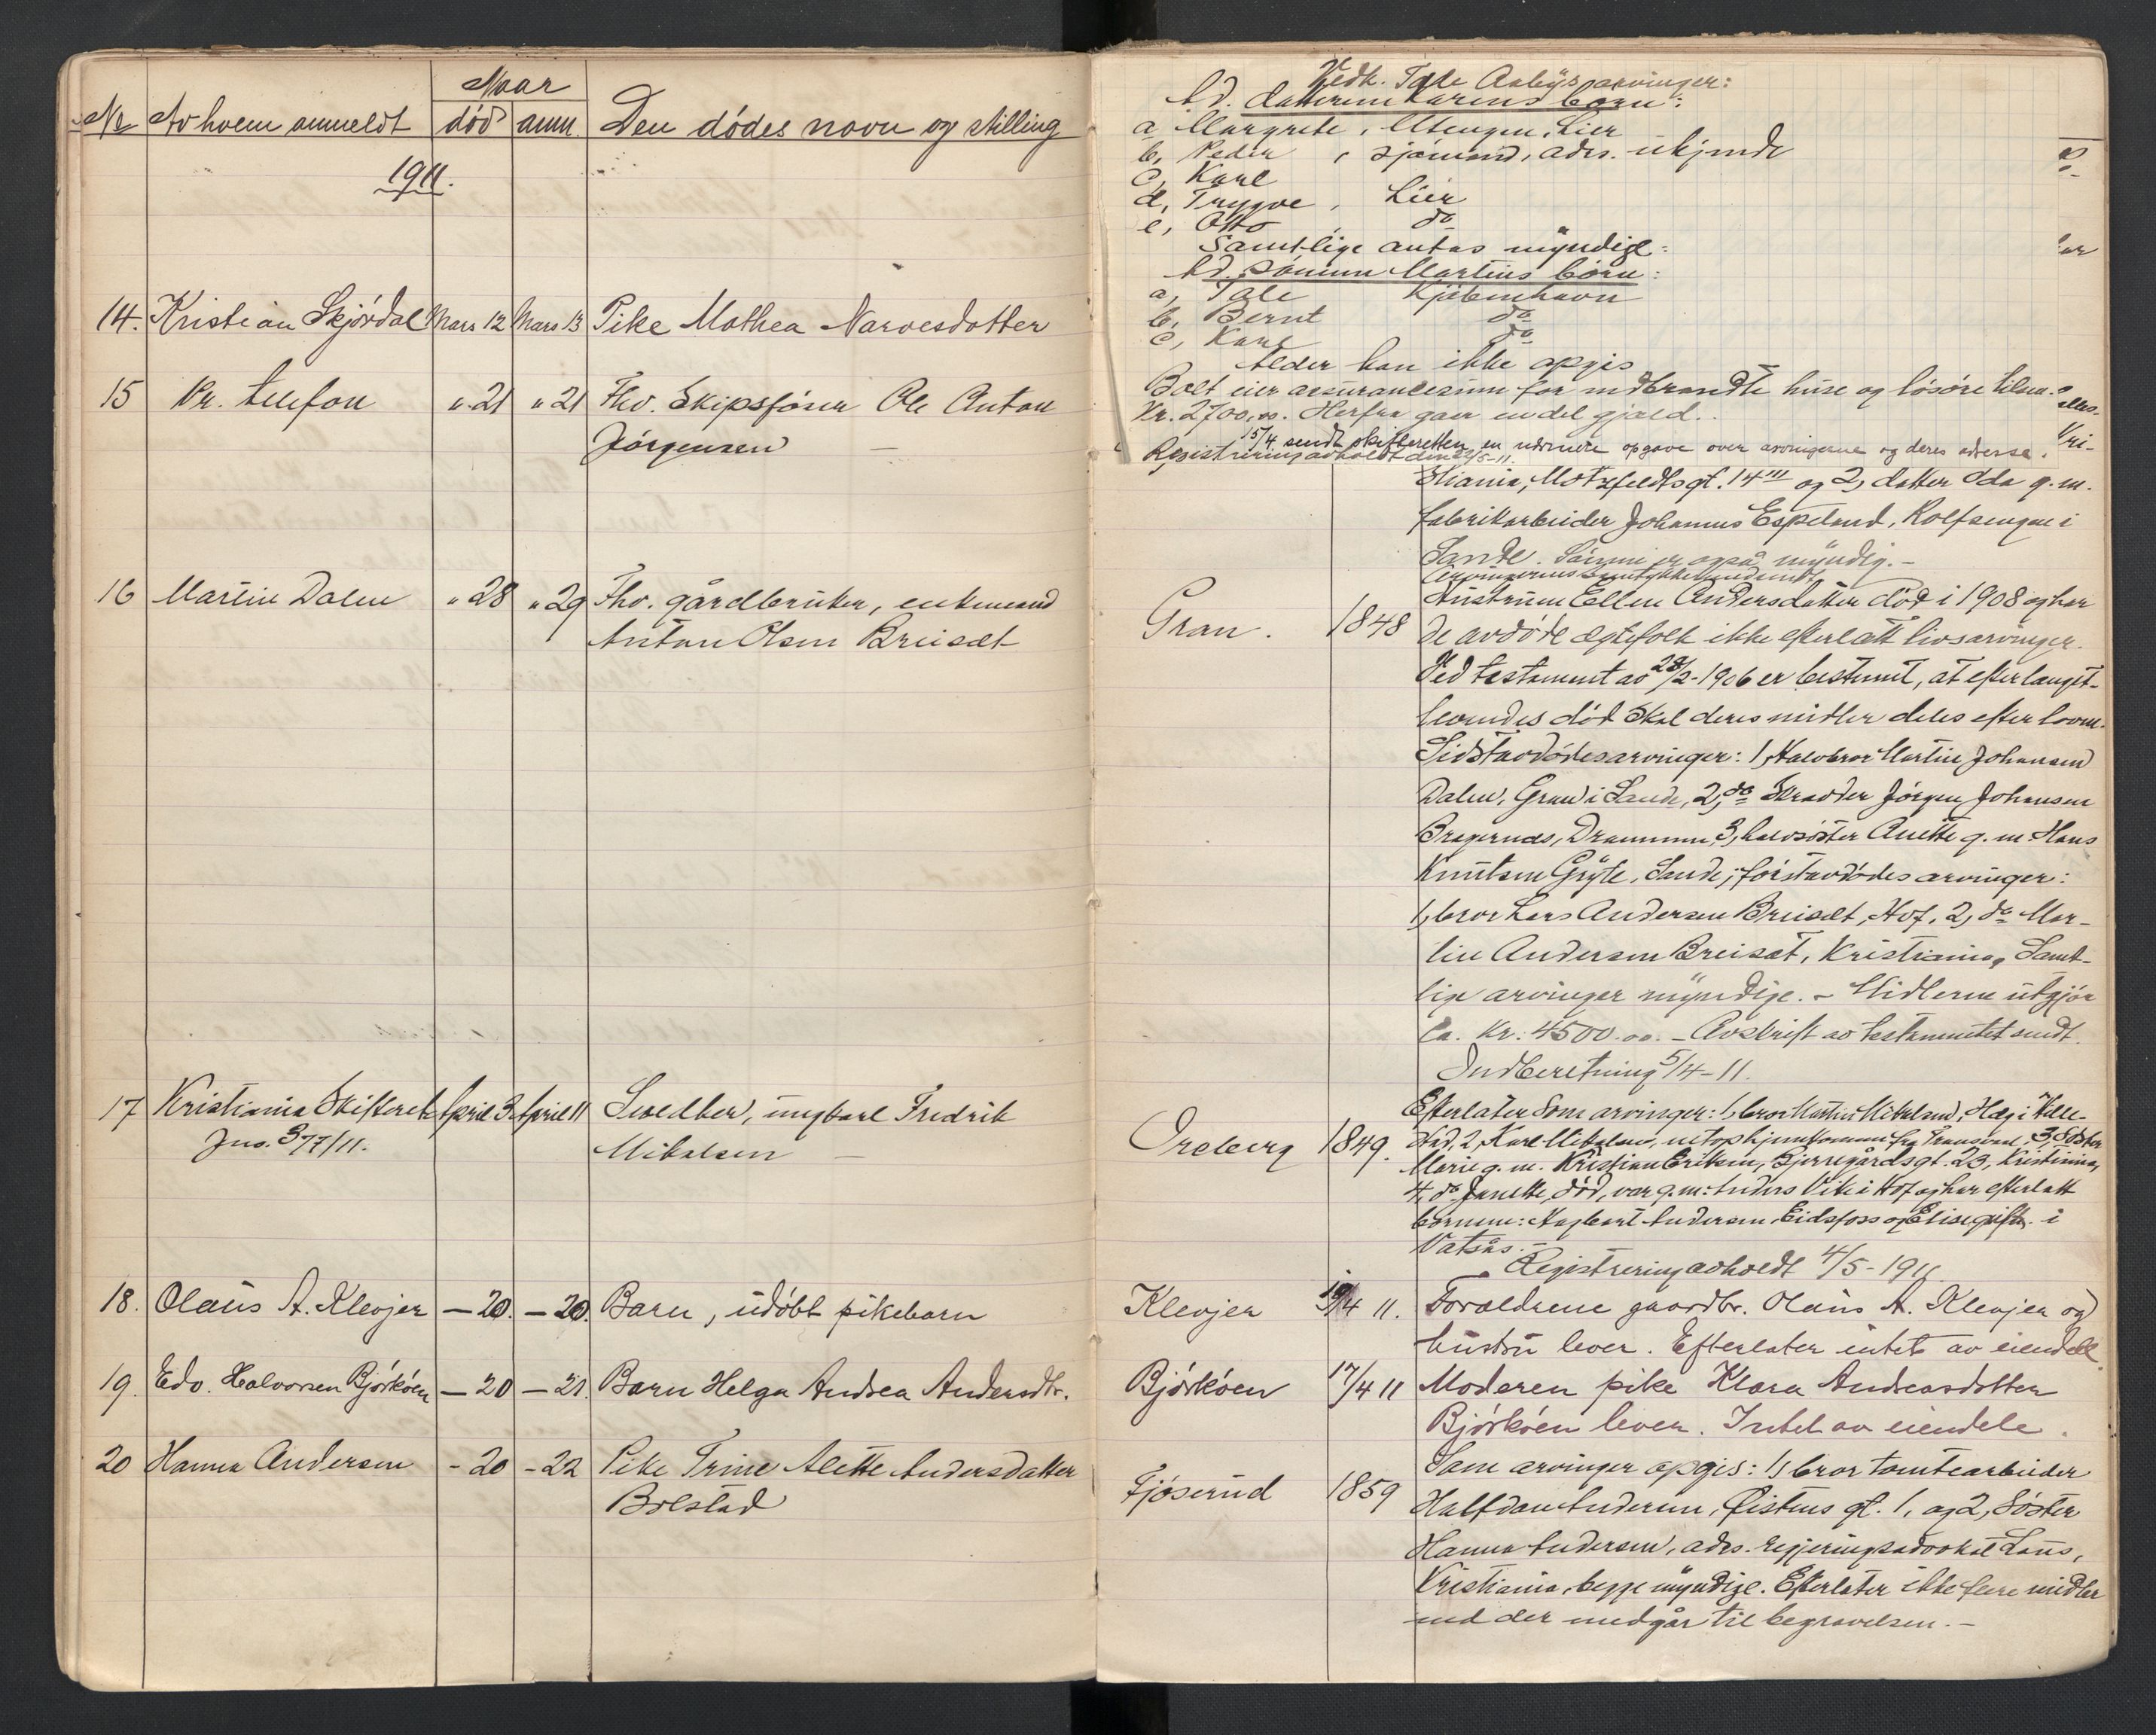 Naar
No Av hvem anmeldt død anm. Den dødes navn og stilling
1911.
14. Kristian Skjørdal Mars 12 Mars 13 Pike Mathea Narvesdatter
15 Pr. telefon " 21 " 21 Fhv. Skipsfører Ole Anton
Jørgensen —
16 Martin Dalen " 28 " 29 Fhv. gårdbruker, enkemand
Anton Olsen Breisæt
17 Kristiania Skifteret April 3 April 11 Swedber, ungkarl Fredrik
Jno. 377/11. Mikalsen —
18. Olaus A. Klevjer — 20. — 20. Barn, udøbt pikebarn
19. Edv. Halvorsen Bjørkøen — 20 — 21. Barn Helga Andrea Andersdtr.
20 Hanna Andersen - 20 - 22 Pike Trine Alette Andersdatter
Bolstad
Vedk. Tale arvinger:
Ad. datteren Karens barn:
a Margrete, Lier
b, Peder, sjømand, adrs. ukjendt
c, Karl
d, Trygve, Lier
e, Otto, do
Samtlige antas myndige.
Ad. sønnen Martins børn:
a, Tale Kjøbenhavn
b, Bernt do
c, Karl do
Alder kan ikke opgis
Boet eier assurancesum for nedbrændte huse og løsøre tilsm.
Kr. 2700,00. Herfra gaar endel gjæld.
15/4 sendt skifteretten en nærmere opgave over arvingerne og deres adresse.
Registrering avholdt den /5-11.
Kri-
stiania, Motzfeldtsgt. 14 III og 2, datter Oda g. m.
fabrikarbeider Johannes Espeland, Rolfsengen i
Sande. er også myndig. –
Hustruen Ellen Andersdatter død i 1908 og har
Gran. 1848 de avdøde ægtefolk ikke efterlatt livsarvinger.
Ved testament av 28/2-1906 er bestemt, at efter længst-
levendes død skal deres midler deles efter loven.
Sidstavdødes arvinger: 1, Halvbror Martin Johansen
Dalen, Gran i Sande, 2, do Skrædder Jørgen Johansen
Bragernæs, Drammen, 3, halvsøster Anette g. m. Hans
Knutsen Gryte, Sande; førstavdødes arvinger:
1, bror Lars Andersen Breisæt, Hof, 2, do Mar-
tin Andersen Breisæt, Kristiania, Samt-
lige arvinger myndige. – Midlerne utgjør
Ca. Kr. 4500.00. – Avskrift av testamentet sendt.
Indberetning 5/4-11.
Efterlater som arvinger: 1, bror Martin Mikalsen, Hæg i Hille-
Oreberg 1849. stad, 2, Karl Mikalsen, netop hjemkommen fra Transvaal, 3, Søster
Marie g. m. Kristian Eriksen, Bjerregårdsgt. 23, Kristiania,
4, do Janette, død, var g. m. Anders Vike i Hof og har efterlatt
børnene: Hagbart Andersen Eidsfoss og Elise gift i
Vatsås. –
Registrering avholdt 4/5-1911
Klevjer 19/4 11. Forældrene gaardbr. Olaus A. Klevjer og
hustru lever. Efterlater intet av eiendele.
Bjørkøen 17/4 11 Moderen pike Klara Andreasdatter
Bjørkøen lever. Intet av eiendele.
Som arvinger opgis: 1, bror tomtearbeider
Fjøserud 1859 Halfdan Andersen, Øistens gt. 1, og 2, Søster
Hanna Andersen, adrs. regjeringsadvokat Lous,
Kristiania, begge myndige. Efterlater ikke flere midler
end der medgår til begravelsen. –